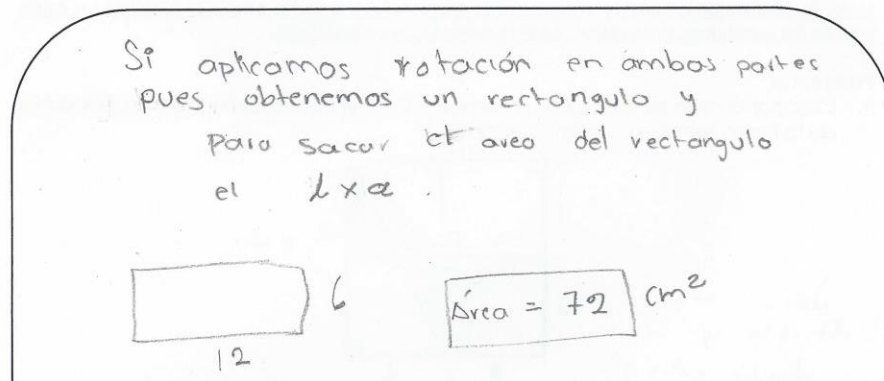 Si aplicamos rotación en ambas partes
pues obtenemos un rectangulo y
para sacar el area del rectangulo
el l x a .
6
12
Área = 72 cm²